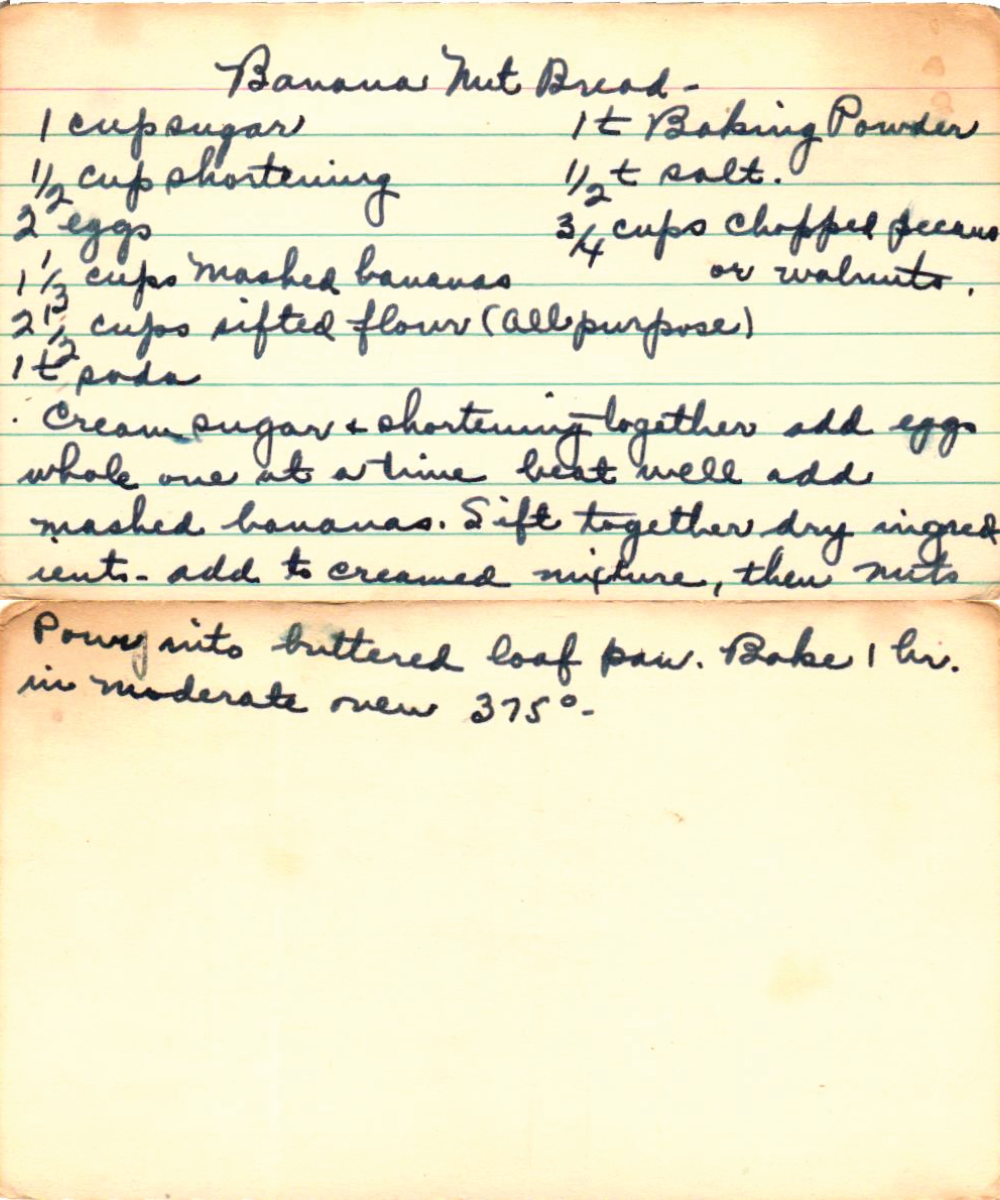 Banana Nut Bread -
1 cup sugar
1/2 cup shortening
2 eggs
1 1/3 cups mashed bananas
2 1/2 cups sifted flour (all purpose)
1 t soda
1 t Baking Powder
1/2 t salt.
3/4 cups chopped pecans
or walnuts.
Cream sugar & shortening together add eggs
whole one at a time beat well add
mashed bananas. Sift together dry ingred
ients - add to creamed mixture, then nuts
Pour into buttered loaf pan. Bake 1 hr.
in moderate oven 375° -